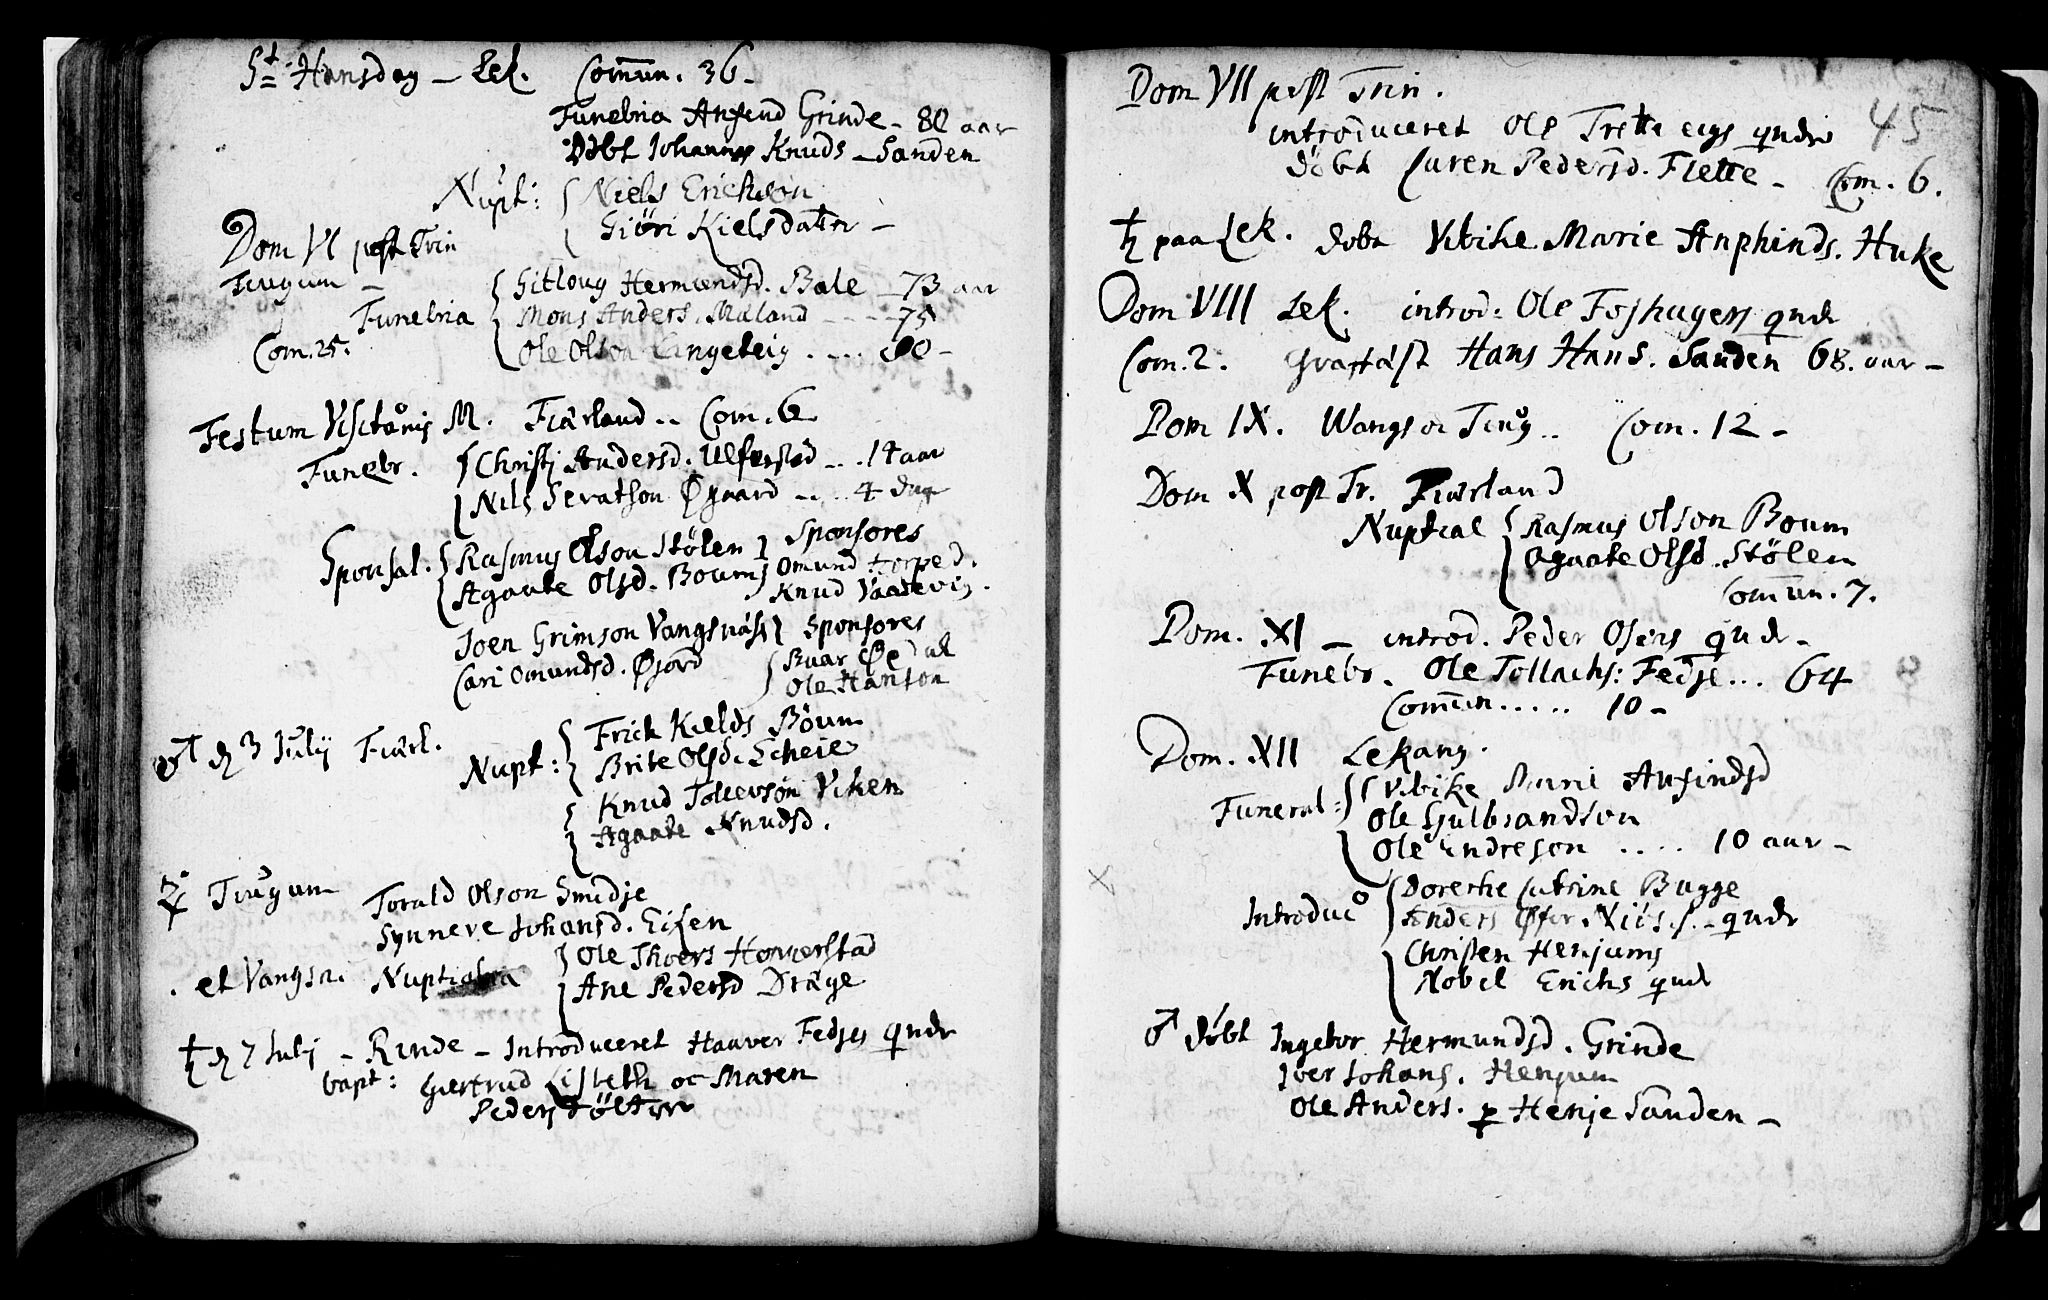 St. Hansdag – Lek. Com̅un. 36 –
Funebria Anfend Grinde – 80 aar
Döbt Johannes Knuds – Sanden
Nupt: { Niels Erichsøn
Giöri Kielsdatter –
Dom VI post Trin
Tiugum –
Funebria { Sitloug Hermundsd. Bale – 73 aar
Mons Anders. Maland – – – 75
Com. 25. Ole Olson Langeteig . . . . 80 –
Festum Visita͞onis M. Fiærland .. Com. 6
Funebr. { Christi Andersd. Ulfersted . . . 14 aar
Nils Seratson Øgaard . . . . 4 dage
Sponsal. { Rasmus Olson Stölen } Sponsores
Agaate Olsd. Boums } Omund Torped.
Knud Vaatevig.
Joen Grimson Vangsnäs } Sponsores
Cari Omundsd. Øjord { Buar Øedal
Ole Hanson
♂ d 3 Julij Fiærl. Nupt: { Erick Kields Böum
Brite Olsd. Scheie
{ Knud Tollevsøn Viken
Agaate Knudsd.
♃ Tiugum Torald Olson Smidje
Synneve Johansd. Eisen
et Vangsn. Nuptialia { Ole Thoers Hovverstad
Ane Pedersd Dräge
♄ d 7 Julij – Rinde – Introduceret Haaver Fedjes qude
bapt: Giertrud Lisbeth oc Maren
Peders Dötter
45
Dom VII post Trin.
introduceret Ole Trette eigs qude
döbt Caren Pedersd. Flette – Com. 6.
♄ paa Lek. döbt Vibike Marie Anphinds. Huke
Dom VIII Lek. introd: Ole Foshagens qude
Com. 2. Graffäst Hans Hans. Sanden 68. aar –
Dom IX. Wangs oc Tiug .. Com. 12 –
Dom X post Tr. Fiærland
Nuptial { Rasmus Olson Boum
Agaate Olsd. Stölen
Com̅un. 7.
Dom. XI – introd. Peder Osens qude –
Funebr. Ole Tollachs: Fedje . . . 64
Com̅un . . . . . 10 –
Dom. XII Lekang.
Funeral: { Vibike Marie Anfindsd
Ole Gulbrandson
Ole Endreson . . . . 10 aar –
Introduc° { Dorethe Catrine Bugge
Anders Øfer Niös. s. – qude
{ Christen Henjums
Nobel Erichs qude
♂ döbt Ingebor Hermundsd. Grinde
Iver Johans. Henjum
Ole Anders. p Henje Sanden –